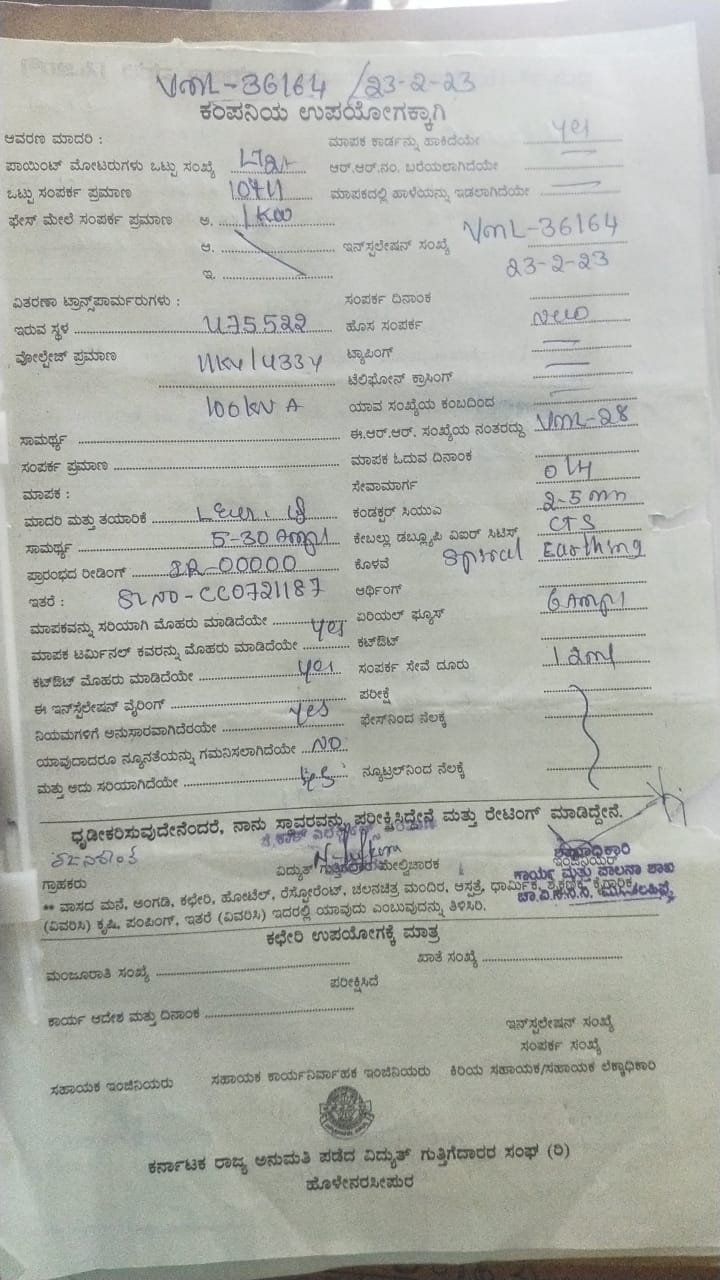 VML-36164 / 23-2-23
ಕಂಪನಿಯ ಉಪಯೋಗಕ್ಕಾಗಿ
ಆವರಣ ಮಾದರಿ : ಮಾಪಕ ಕಾರ್ಡನ್ನು ಹಾಕಿದೆಯೇ yes
ಪಾಯಿಂಟ್ ಮೋಟರುಗಳು ಒಟ್ಟು ಸಂಖ್ಯೆ ಆರ್.ಆರ್.ನಂ. ಬರೆಯಲಾಗಿದೆಯೇ
ಒಟ್ಟು ಸಂಪರ್ಕ ಪ್ರಮಾಣ ಮಾಪಕದಲ್ಲಿ ಹಾಳೆಯನ್ನು ಇಡಲಾಗಿದೆಯೇ
ಫೇಸ್ ಮೇಲೆ ಸಂಪರ್ಕ ಪ್ರಮಾಣ ಅ. 1KW
ಆ. ಇನ್‌ಸ್ಟಲೇಷನ್ ಸಂಖ್ಯೆ VML-36164
ಇ. 23-2-23
ವಿತರಣಾ ಟ್ರಾನ್ಸ್‌ಫಾರ್ಮರುಗಳು : ಸಂಪರ್ಕ ದಿನಾಂಕ
ಇರುವ ಸ್ಥಳ U75522 ಹೊಸ ಸಂಪರ್ಕ New
ವೋಲ್ಟೇಜ್ ಪ್ರಮಾಣ 11KV/433V ಟ್ಯಾಪಿಂಗ್
ಟೆಲಿಫೋನ್ ಕ್ರಾಸಿಂಗ್
100KVA ಯಾವ ಸಂಖ್ಯೆಯ ಕಂಬದಿಂದ
ಸಾಮರ್ಥ್ಯ ಈ.ಆರ್.ಆರ್. ಸಂಖ್ಯೆಯ ನಂತರದ್ದು VML-28
ಸಂಪರ್ಕ ಪ್ರಮಾಣ ಮಾಪಕ ಓದುವ ದಿನಾಂಕ
ಮಾಪಕ : ಸೇವಾಮಾರ್ಗ O/H
ಮಾದರಿ ಮತ್ತು ತಯಾರಿಕೆ ಕಂಡಕ್ಟರ್ ಸಿಯುಎ 2-5mm
ಸಾಮರ್ಥ್ಯ 5-30 Amps ಕೇಬಲ್ಲು ಡಬ್ಲ್ಯೂಪಿ ಏಐರ್ ಸಿಟಿಸ್ CTS
ಪ್ರಾರಂಭದ ರೀಡಿಂಗ್ IR-00000 ಕೊಳವೆ Spiral Earthing
ಇತರೆ : SL NO-CC0721187 ಆರ್ಥಿಂಗ್
ಮಾಪಕವನ್ನು ಸರಿಯಾಗಿ ಮೊಹರು ಮಾಡಿದೆಯೇ yes ಏರಿಯಲ್ ಫ್ಯೂಸ್ 6 Amps
ಮಾಪಕ ಟರ್ಮಿನಲ್ ಕವರನ್ನು ಮೊಹರು ಮಾಡಿದೆಯೇ ಕಟ್‌ಔಟ್
ಕಟ್‌ಔಟ್ ಮೊಹರು ಮಾಡಿದೆಯೇ yes ಸಂಪರ್ಕ ಸೇವೆ ದೂರು
ಈ ಇನ್‌ಸ್ಟಲೇಷನ್ ವೈರಿಂಗ್ ಪರೀಕ್ಷೆ
ನಿಯಮಗಳಿಗೆ ಅನುಸಾರವಾಗಿದೆರಯೇ yes ಫೇಸ್‌ನಿಂದ ನೆಲಕ್ಕೆ
ಯಾವುದಾದರೂ ನ್ಯೂನತೆಯನ್ನು ಗಮನಿಸಲಾಗಿದೆಯೇ NO
ಮತ್ತು ಅದು ಸರಿಯಾಗಿದೆಯೇ yes ನ್ಯೂಟ್ರಲ್‌ನಿಂದ ನೆಲಕ್ಕೆ
ಧೃಡೀಕರಿಸುವುದೇನೆಂದರೆ, ನಾನು ಸ್ಥಾವರವನ್ನು ಪರೀಕ್ಷಿಸಿದ್ದೇನೆ ಮತ್ತು ರೇಟಿಂಗ್ ಮಾಡಿದ್ದೇನೆ.
ಗ್ರಾಹಕರು ವಿದ್ಯುತ್ ಗುತ್ತಿಗೆದಾರ ಮೇಲ್ವಿಚಾರಕ ಇಂಜಿನಿಯರ್
** ವಾಸದ ಮನೆ, ಅಂಗಡಿ, ಕಛೇರಿ, ಹೋಟೆಲ್, ರೆಸ್ಟೋರೆಂಟ್, ಚಲನಚಿತ್ರ ಮಂದಿರ, ಆಸ್ಪತ್ರೆ, ಧಾರ್ಮಿಕ, ಶೈಕ್ಷಣಿಕ, ಕೈಗಾರಿಕ
(ವಿವರಿಸಿ) ಕೃಷಿ, ಪಂಪಿಂಗ್, ಇತರೆ (ವಿವರಿಸಿ) ಇದರಲ್ಲಿ ಯಾವುದು ಎಂಬುವುದನ್ನು ತಿಳಿಸಿರಿ.
ಕಛೇರಿ ಉಪಯೋಗಕ್ಕೆ ಮಾತ್ರ
ಮಂಜೂರಾತಿ ಸಂಖ್ಯೆ ಖಾತೆ ಸಂಖ್ಯೆ
ಪರೀಕ್ಷಿಸಿದೆ
ಕಾರ್ಯ ಆದೇಶ ಮತ್ತು ದಿನಾಂಕ
ಇನ್‌ಸ್ಟಲೇಷನ್ ಸಂಖ್ಯೆ
ಸಂಪರ್ಕ ಸಂಖ್ಯೆ
ಸಹಾಯಕ ಇಂಜಿನಿಯರು ಸಹಾಯಕ ಕಾರ್ಯನಿರ್ವಾಹಕ ಇಂಜಿನಿಯರು ಕಿರಿಯ ಸಹಾಯಕ/ಸಹಾಯಕ ಲೆಕ್ಕಾಧಿಕಾರಿ
ಕರ್ನಾಟಕ ರಾಜ್ಯ ಅನುಮತಿ ಪಡೆದ ವಿದ್ಯುತ್ ಗುತ್ತಿಗೆದಾರರ ಸಂಘ (ರಿ)
ಹೊಳೇನರಸೀಪುರ